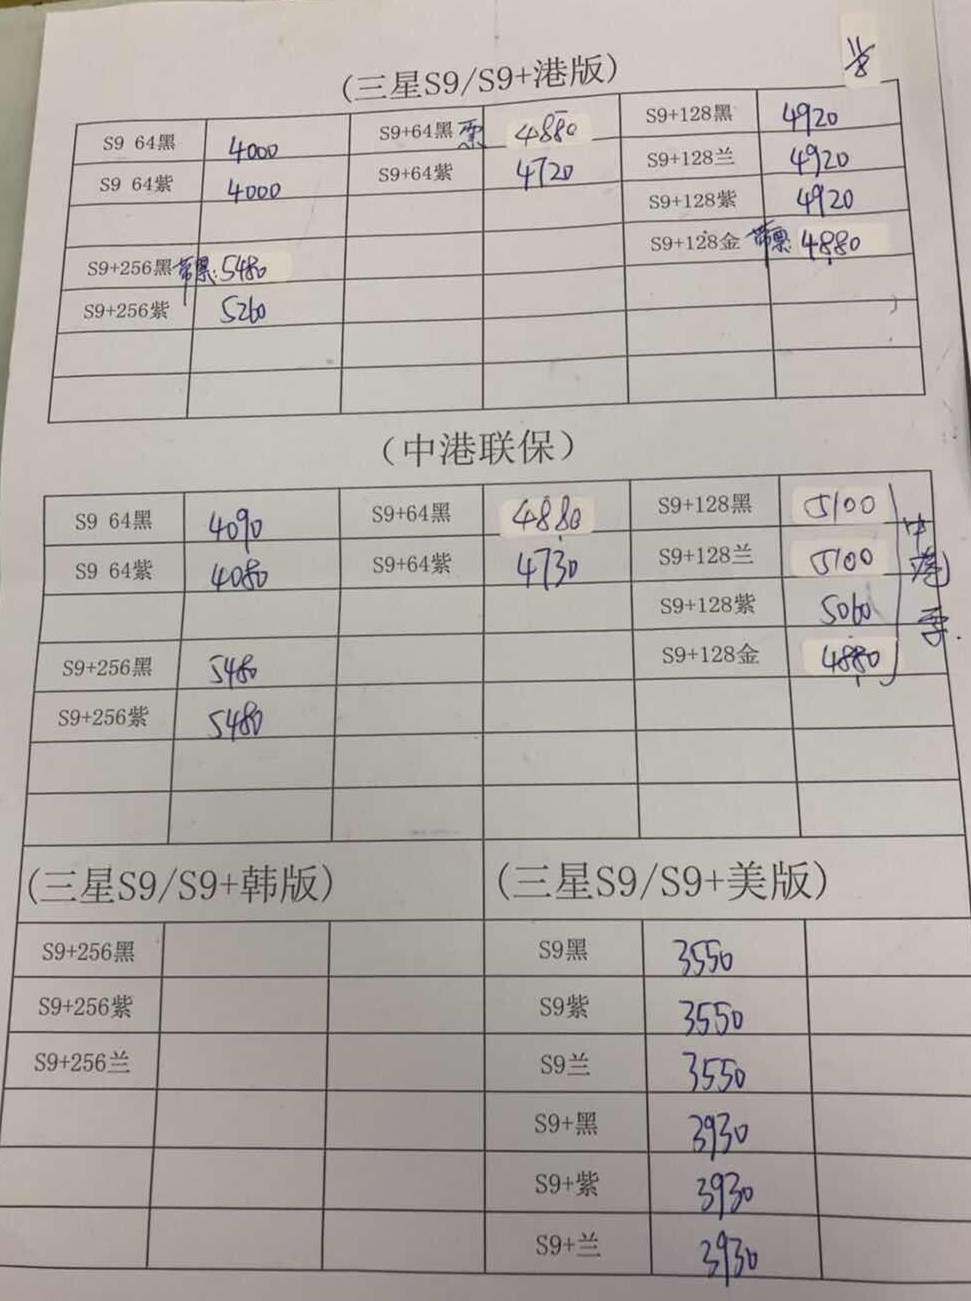 11/8
(三星S9/S9+港版)
S9 64黑 4000 S9+64黑 票 4880 S9+128黑 4920
S9 64紫 4000 S9+64紫 4720 S9+128兰 4920
S9+128紫 4920
S9+256黑 带票: 5480 S9+128金 带票: 4880
S9+256紫 5260
(中港联保)
S9 64黑 4090 S9+64黑 4880 S9+128黑 5100
S9 64紫 4080 S9+64紫 4730 S9+128兰 5100
S9+128紫 5060
S9+256黑 5480 S9+128金 4880
S9+256紫 5480
中
(三星S9/S9+韩版) (三星S9/S9+美版)
S9+256黑 S9黑 3550
S9+256紫 S9紫 3550
S9+256兰 S9兰 3550
S9+黑 3930
S9+紫 3930
S9+兰 3930